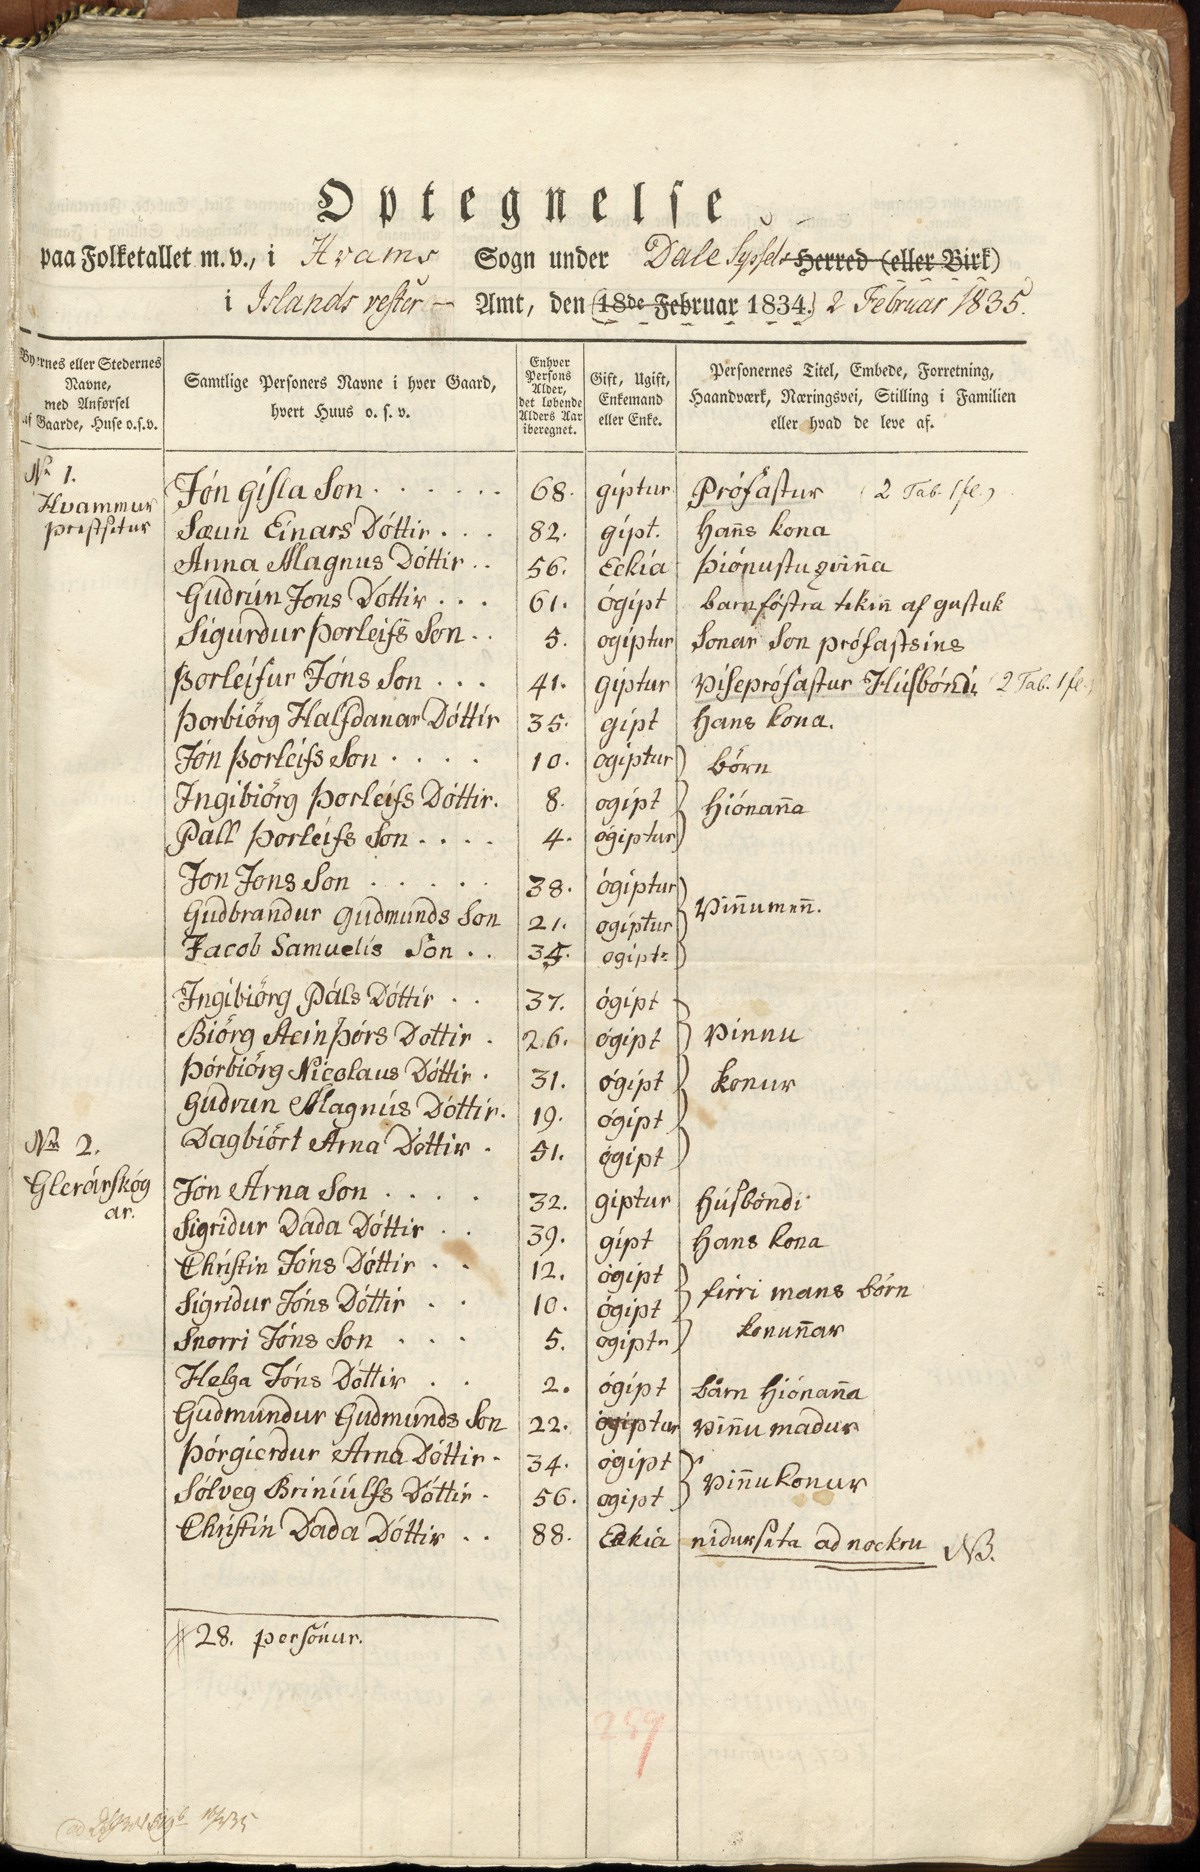 Optegnelse
paa Folketallet m. v., i Hvams Sogn under Dale Syssel Herred (eller Birk)
i Islands vester Amt, den (18de Februar 1834.) 2 Februar 1835.
Byernes eller Stedernes Navne, med Anførsel af Gaarde, Huse o.s.v.
Samtlige Personers Navne i hver Gaard, hvert Huus o. s. v.
Enhver Persons Alder, det løbende Alders Aar iberegnet.
Gift, Ugift, Enkemand eller Enke.
Personernes Titel, Embede, Forretning, Haandværk, Næringsvei, Stilling i Familien eller hvad de leve af.
No 1.
Hvammur
prestsetur
Jón Gisla Son 68. giptur Prófastur (2 Tab. 1 fl.)
Sæun Einars Dóttir 82. gipt. hans kona
Anna Magnus Dóttir 56. Eckia þiónustuqvinna
Gudrún Jons Dóttir 61. ógipt barnfóstra tekin af gustuk
Sigurdur Þorleifs Son 5. ogiptur Sonar Son prófastsins
Þorleifur Jóns Son 41. giptur Viseprófastur Húsbóndi (2 Tab. 1 fl.)
Þorbiörg Halfdanar Dóttir 35. gipt hans kona.
Jón Þorleifs Son 10. ogiptur börn
Ingibiörg Þorleifs Dóttir. 8. ogipt hiónanna
Pall Þorleifs Son 4. ógiptur
Jon Jons Son 38. ógiptur
Gudbrandur Gudmunds Son 21. ogiptur Vinnumenn.
Jacob Samuelis Son 35. ogiptr
Ingibiörg Páls Dóttir 37. ógipt
Biörg SteinÞórs Dottir 26. ógipt Vinnu
Þórbiörg Nicolaus Dóttir 31. ógipt konur
Gudrun Magnús Dóttir. 19. ógipt
Dagbiört Arna Dóttir 51. ógipt
No 2.
Glerárskóg
ar.
Jón Arna Son 32. giptur húsbóndi
Sigridur Dada Dóttir 39. gipt hans kona
Christin Jóns Dóttir 12. ógipt firri mans börn
Sigridur Jóns Dóttir 10. ógipt konunnar
Snorri Jóns Son 5. ogiptr
Helga Jóns Dóttir 2. ógipt barn hiónanna
Gudmundur Gudmunds Son 22. ógiptur Vinnu madur
Þórgierdur Arna Dóttir 34. ógipt Vinnukonur
Sólveg Briniúlfs Dóttir 56. ogipt
Christín Dada Dóttir 88. Eckia nidurseta ad nockru NB.
28. persónur.
259